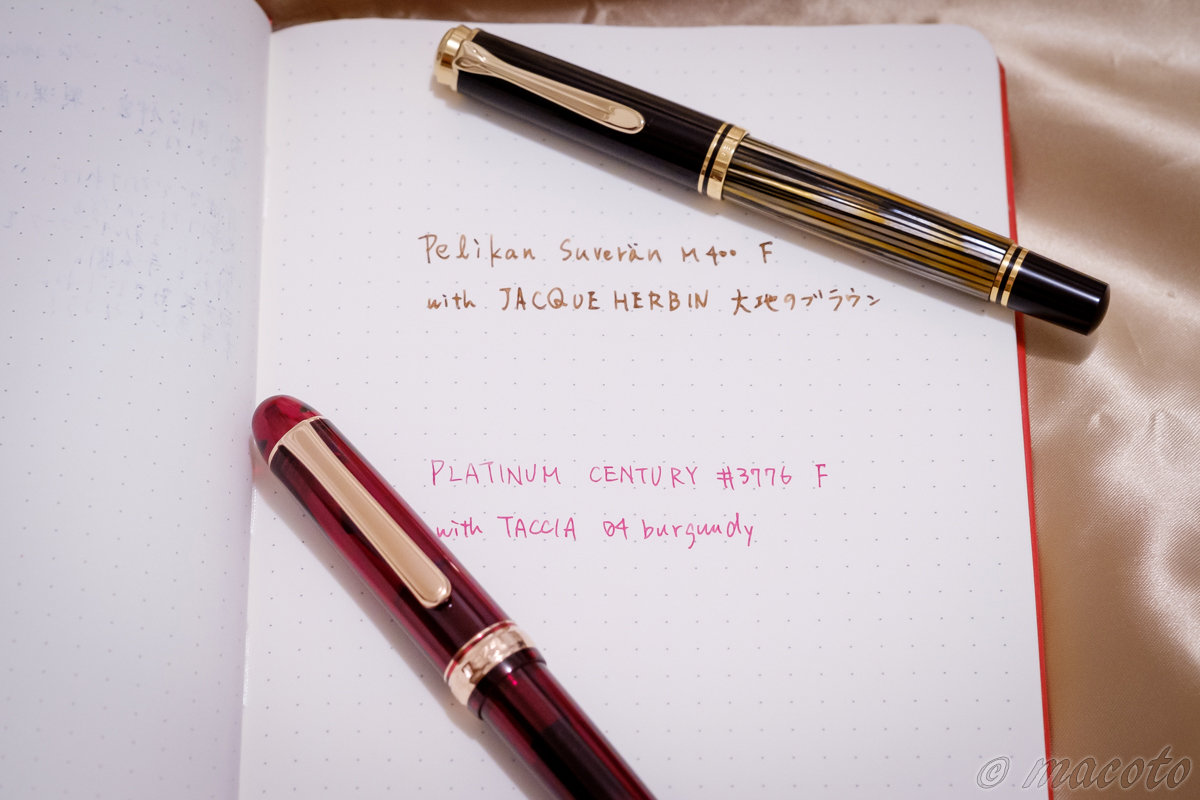 Pelikan Suverän M400 F
with JACQUE HERBIN 大地のブラウン
PLATINUM CENTURY #3776 F
with TACCIA 04 burgundy
© macoto